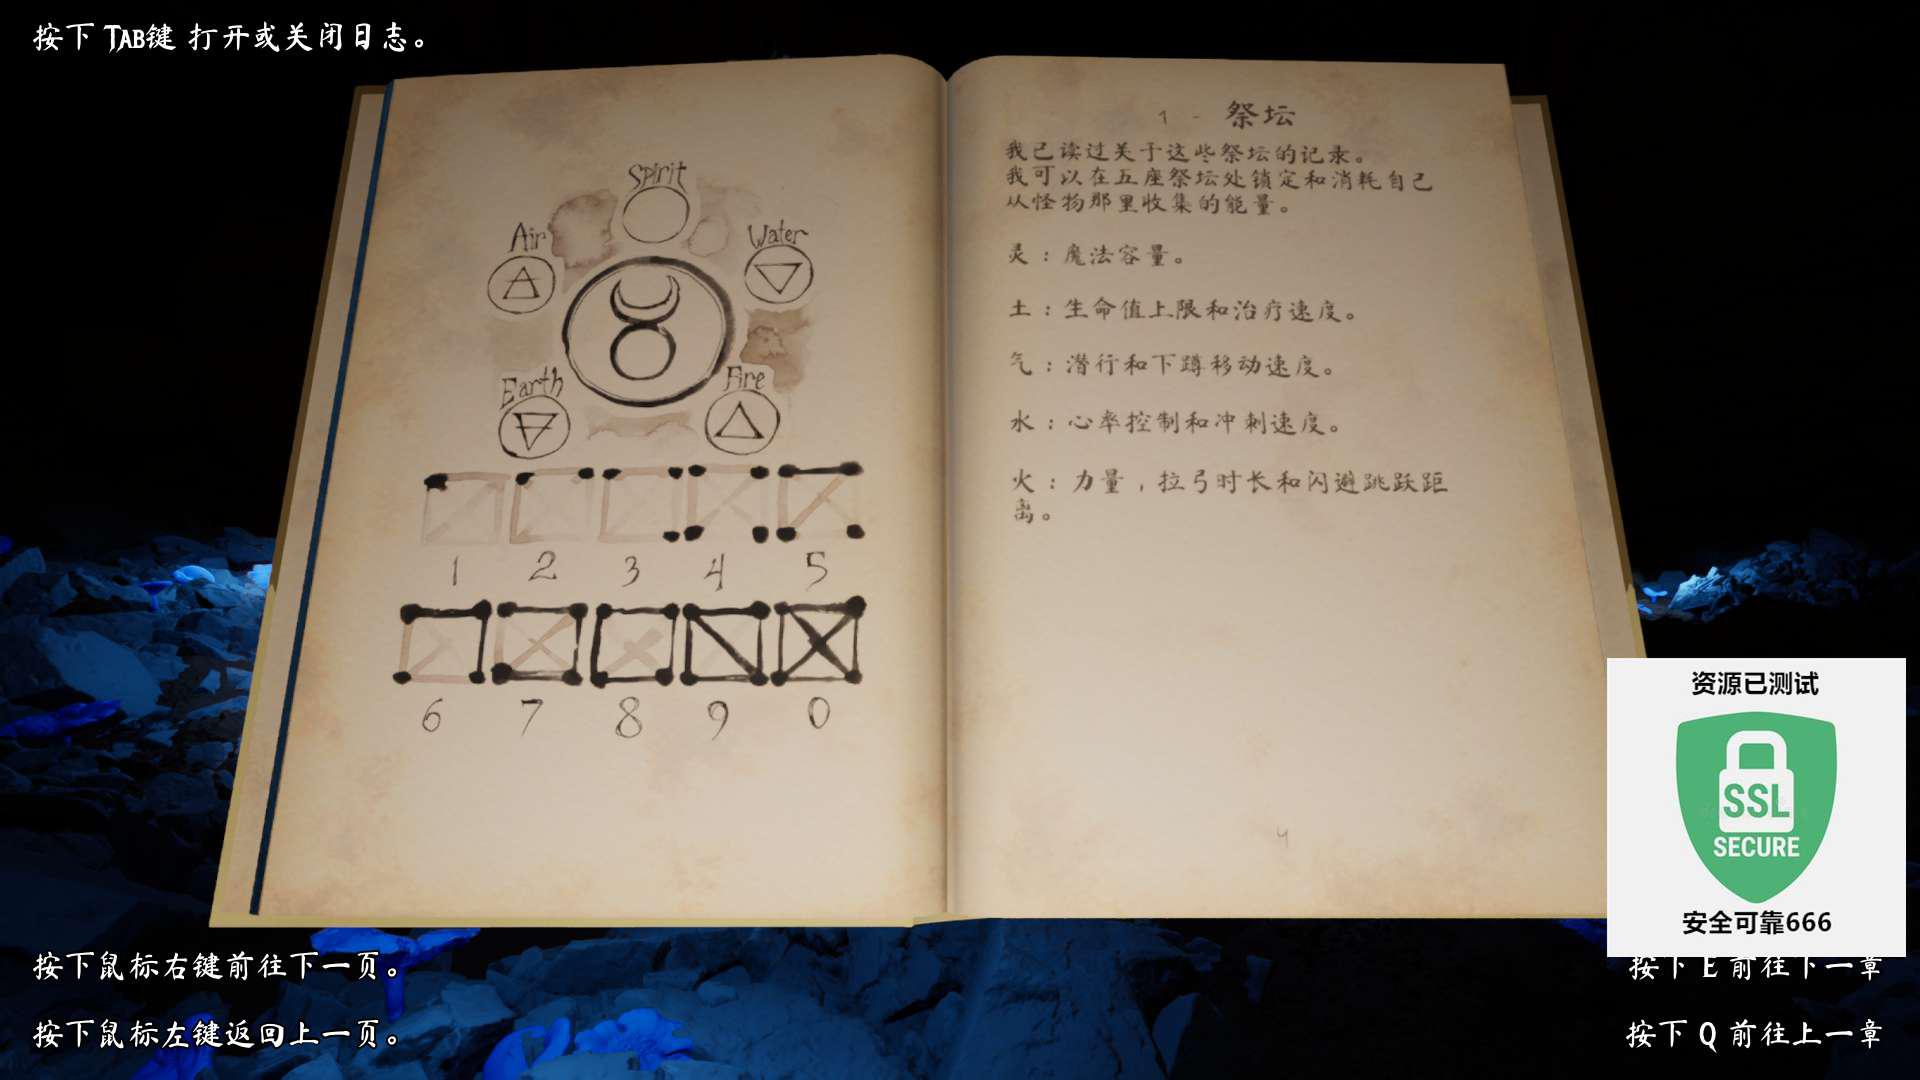 按下 TAB键 打开或关闭日志。
Spirit
Air
Water
Earth
Fire
1 2 3 4 5
6 7 8 9 0
1 - 祭坛
我已读过关于这些祭坛的记录。
我可以在五座祭坛处锁定和消耗自己
从怪物那里收集的能量。
灵：魔法容量。
土：生命值上限和治疗速度。
气：潜行和下蹲移动速度。
水：心率控制和冲刺速度。
火：力量，拉弓时长和闪避跳跃距
离。
4
资源已测试
SSL
SECURE
安全可靠666
按下鼠标右键前往下一页。
按下鼠标左键返回上一页。
按下 E 前往下一章
按下 Q 前往上一章